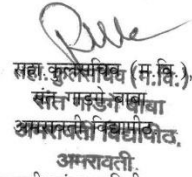 सहा. कुलसचिव (म.वि.)
संत गाडगे बाबा
अमरावती विद्यापीठ.
अमरावती.